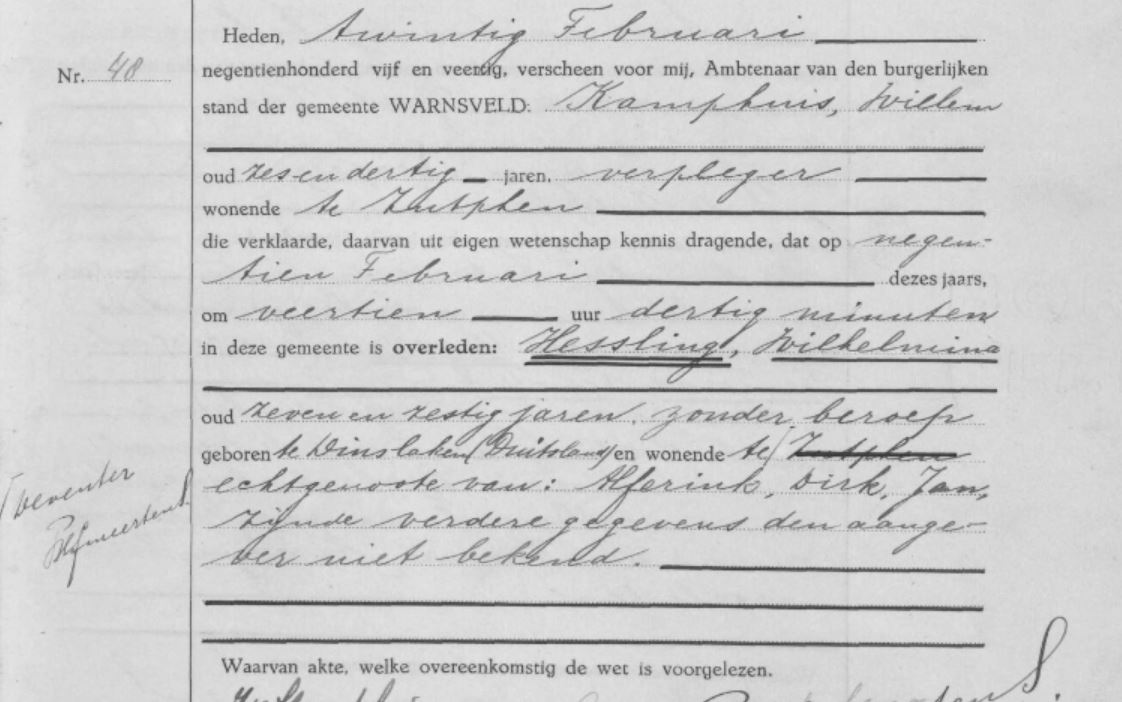 Heden, twintig Februari
Nr. 48 negentienhonderd vijf en veertig, verscheen voor mij, Ambtenaar van den burgerlijken
stand der gemeente WARNSVELD: Kamphuis, Willem
oud zesendertig jaren, verpleger
wonende te Zutphen
die verklaarde, daarvan uit eigen wetenschap kennis dragende, dat op negen-
tien Februari dezes jaars,
om veertien uur dertig minuten
in deze gemeente is overleden: Hessling, Wilhelmina
oud zeven en zestig jaren, zonder beroep
geboren te Dinslaken (Duitsland) en wonende te Zutphen
Deventer
echtgenoote van: Alferink, Dirk, Jan,
zijnde verdere gegevens den aange-
ver niet bekend.
Waarvan akte, welke overeenkomstig de wet is voorgelezen.